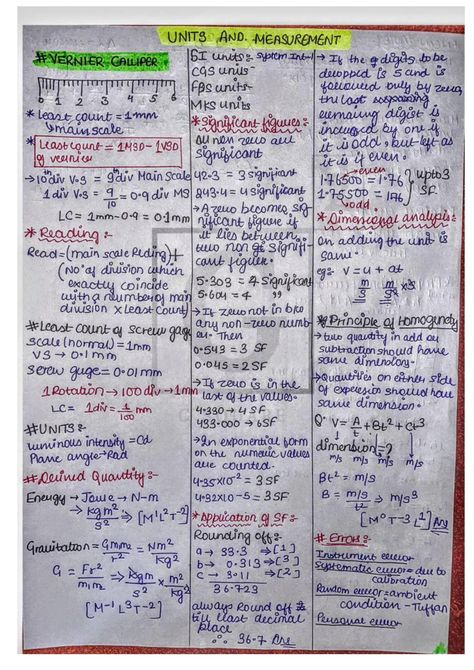 UNITS AND MEASUREMENT
#VERNIER CALLIPER
0 1 2 3 4 5 6
* Least count = 1mm
↳ main scale
* Least count = 1MSD - 1VSD
of vernier
→ 10 div V.S = 9 div Main Scale
1 div V.S = 9/10 = 0.9 div MS
LC = 1mm - 0.9 = 0.1mm
* Reading :-
Read = (main scale Reding) +
(No. of division which
exactly coincide
with a number of main
division x least count)
#Least count of screw gage
scale (normal) = 1mm
VS → 0.1mm
screw guge = 0.01mm
1 Rotation → 100 div → 1mm
LC = 1div = 1/100 mm
#UNITS :-
luminous intensity = Cd
Plane angle → Rad
# Derived Quantity :-
Energy → Joule → N-m
→ kgm²/s² ⇒ [M¹L²T⁻²]
Gravitation = Gmm/r² = Nm²/kg²
G = Fr²/m₁m₂ ⇒ kgm/s² x m²/kg²
[M⁻¹ L³ T⁻²]
SI units :- System Int-l
CGS units
FPS units
MKS units
*Significant figures :-
All non zero are
significant
42.3 = 3 significant
243.4 = 4 significant
→ A zero becomes sig-
nificant figure if
it lies between
two non 0 signifi-
cant figure.
5.303 = 4 significant
5.604 = 4 "
→ If zero not in b/w
any non-zero numb-
er. Then
0.543 = 3 SF
0.045 = 2 SF
→ If zero is in the
last of the values.
4.330 → 4 SF
433.000 → 6SF
→ In exponential form
on the numeric values
are counted.
4.35x10² = 3 SF
4.32x10-5 = 3 SF
*Application of SF :-
Rounding off :-
a → 33.3 → [1]
b → 0.313 → [3]
c → 3.11 → [2]
36.723
always Round off
till least decimal
place
∴ 36.7 Ans
→ If the digits to be
dropped is 5 and is
followed only by zeros,
the last
remaning digist is
incresed by one if
it is odd, but left as
it is if even.
even
1.76500 = 1.76
1.75500 = 176
odd
upto 3
SF
*Dimensional analysis :-
On adding the unit is
same.
eg :- v = u + at
m/s m/s m/s² xs
*Principle of Homogundty
→ two quantity in add or
subtraction should have
same dimensions.
→ Quantities on either side
of expresion should have
same dimension.
Q. V = A/t + Bt² + Ct³
dimension = ?
m/s m/s m/s m/s
Bt² = m/s
B = m/s/t² ⇒ m/s³
[M⁰ T-3 L¹] Ans
# Errors :-
Instrument error
Systematic error = due to
calibration
Random error = ambient
condition - Tuffan
Personal error